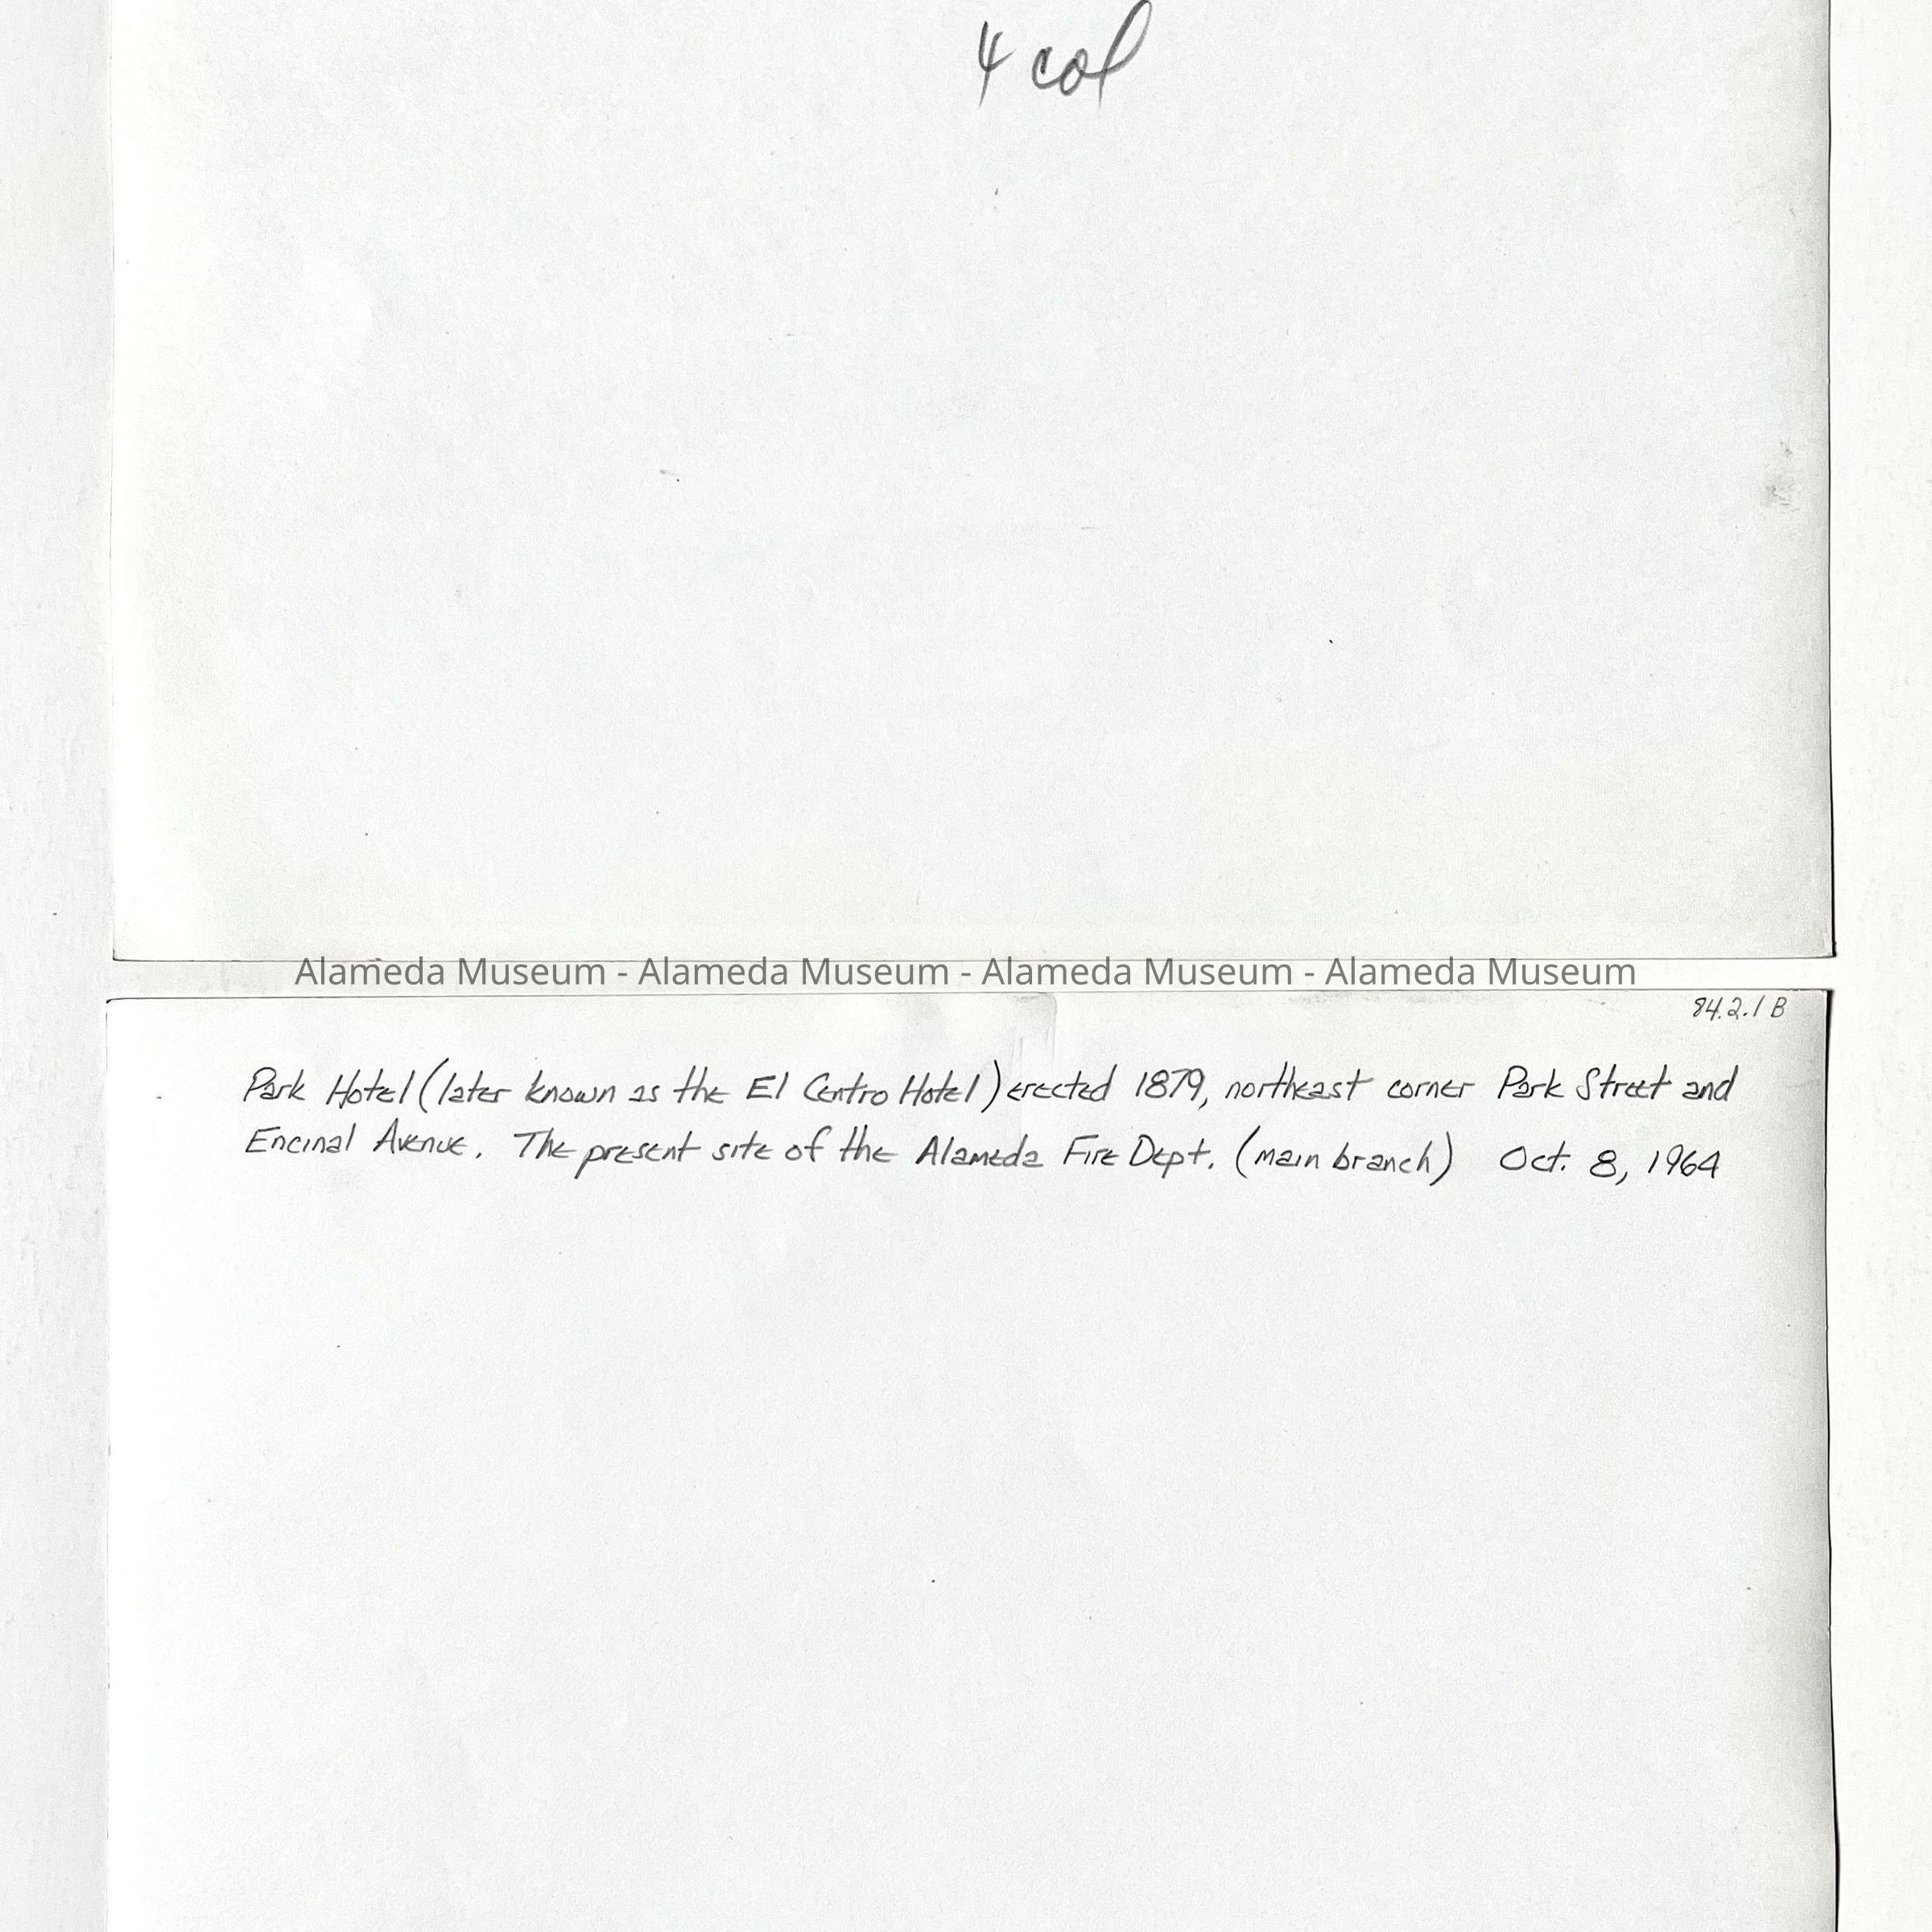 4 col
Alameda Museum - Alameda Museum - Alameda Museum - Alameda Museum
84.2.1 B
Park Hotel (later known as the El Centro Hotel) erected 1879, northeast corner Park Street and
Encinal Avenue. The present site of the Alameda Fire Dept. (main branch) Oct. 8, 1964